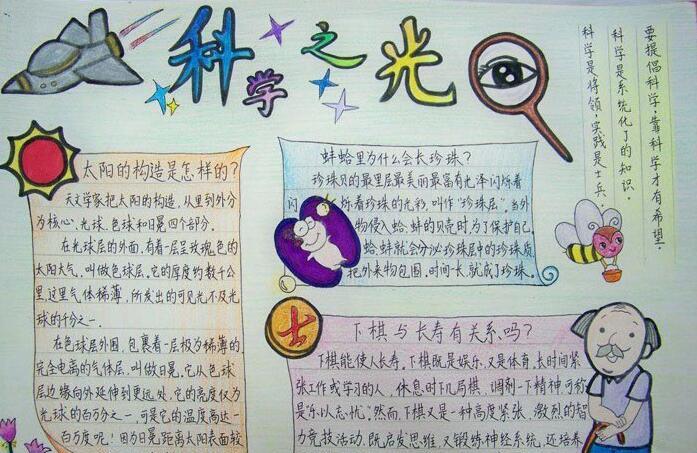 科学之光
要提倡科学,靠科学才有希望。
科学是系统化了的知识。
科学是将领,实践是士兵。
太阳的构造是怎样的?
天文学家把太阳的构造,从里到外分
为核心、光球、色球和日冕四个部分。
在光球层的外面,有着一层呈玫瑰色的
太阳大气。叫做色球层。它的厚度约数千公
里,这里气体稀薄,所发出的可见光不及光
球的千分之一。
在色球层外围,包裹着一层极为稀薄的,
完全电离的气体层,叫做日冕,它从色球
层边缘向外延伸到更远处,它的亮度仅为
光球的百万分之一,可是它的温度高达一
百万度呢!因为日冕距离太阳表面较
蚌蛤里为什么会长珍珠?
珍珠贝的最里层最美丽最富有光泽闪烁着
闪烁着珍珠的光彩,叫作“珍珠层”。当外
物侵入蛤、蚌的贝壳时,为了保护自己,
蛤、蚌就会分泌珍珠层中的珍珠质
把外来物包围,时间一长,就成了珍珠。
士
下棋与长寿有关系吗?
下棋能使人长寿。下棋既是娱乐,又是体育,长时间紧
张工作或学习的人,休息时下几局棋,调剂一下精神,可称
是乐以忘忧。然而,下棋又是一种高度紧张、激烈的智
力竞技活动,既启发思维,又锻炼神经系统,还培养